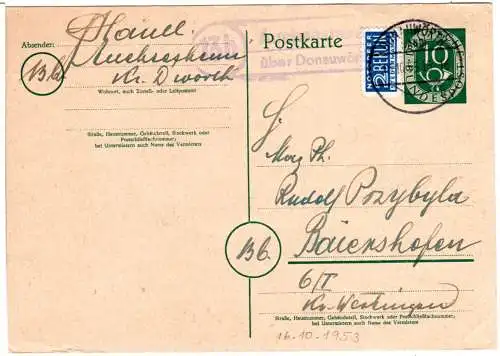 Absender:
Hauck
Auchsesheim
13b Kr. Dwörth
Wohnort, auch Zustell- oder Leitpostamt
Straße, Hausnummer, Gebäudeteil, Stockwerk oder
Postschließfachnummer;
bei Untermietern auch Name des Vermieters
13b
über Donauwörth
Postkarte
2 BERLIN
10
Herrn
Rudolf Przybyla
Baiershofen
13b
6/I
Kr. Wertingen
Straße, Hausnummer, Gebäudeteil, Stockwerk oder Postschließfachnummer;
bei Untermietern auch Name des Vermieters
16.10.1953